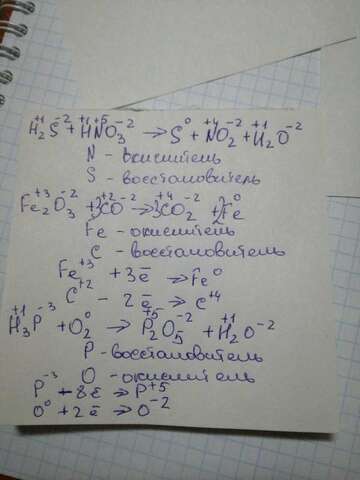 H₂⁺¹S⁻² + H⁺¹N⁺⁵O₃⁻² → S⁰ + N⁺⁴O₂⁻² + H₂⁺¹O⁻²
N - окислитель
S - восстановитель
Fe₂⁺³O₃⁻² + 3C⁺²O⁻² → 3C⁺⁴O₂⁻² + 2Fe⁰
Fe - окислитель
C - восстановитель
Fe⁺³ + 3ē → Fe⁰
C⁺² - 2ē → C⁺⁴
H₃⁺¹P⁻³ + O₂⁰ → P₂⁺⁵O₅⁻² + H₂⁺¹O⁻²
P - восстановитель
O - окислитель
P⁻³ - 8ē → P⁺⁵
O⁰ + 2ē → O⁻²